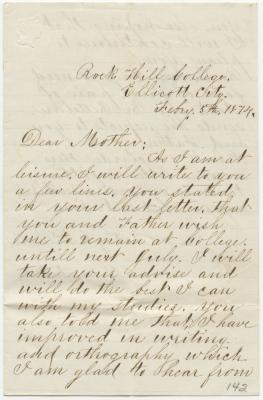 Rock Hill College.
Ellicott City.
Feby. 5th. 1874.
Dear Mother:
As I am at
leisure. I will write to you
a few lines. you stated
in your last letter. that
you and Father wish
me to remain at College.
untill next July. I will
take your advise and
will do the best I can
with my studies. you
also told me that I have
improved in writing
and orthography which
I am glad to hear from
142